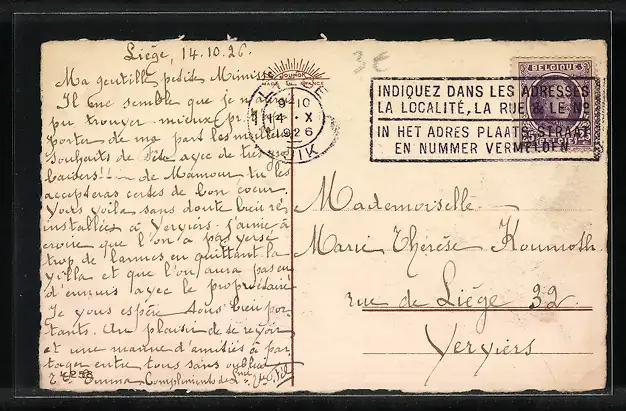 Liége, 14.10.26.
Ma gentille petite Mimisse
Il me semble que je n'aurai
pu trouver mieux pr
porter de ma part les meilleurs
souhaits de fête avec de très
baisers!!... de Mamour tu les
accepteras certes de bon coeur.
Vous voilà sans doute bien ré
installées à Verviers. j'aime à
croire que l'on a pas versé
trop de larmes en quittant la
villa et que l'on aura pas eu
d'ennuis avec le propriétaire
Je vous espère tous bien por-
tants. Au plaisir de se revoir
et une manne d'amitiés à par-
tager entre tous sans oublier
Emma Compliments de
4258
3€
MADE IN FRANCE
LIEGE
9-10
14 - X
1926
LUIK
INDIQUEZ DANS LES ADRESSES
LA LOCALITÉ, LA RUE & LE Nº
IN HET ADRES PLAATS, STRAAT
EN NUMMER VERMELDEN
BELGIQUE
Mademoiselle
Marie Thérèse Koumoth
rue de Liége 32
Verviers